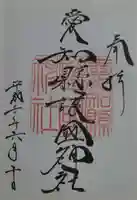 奉拝
愛知縣護國神社
平成二十六年六月十日